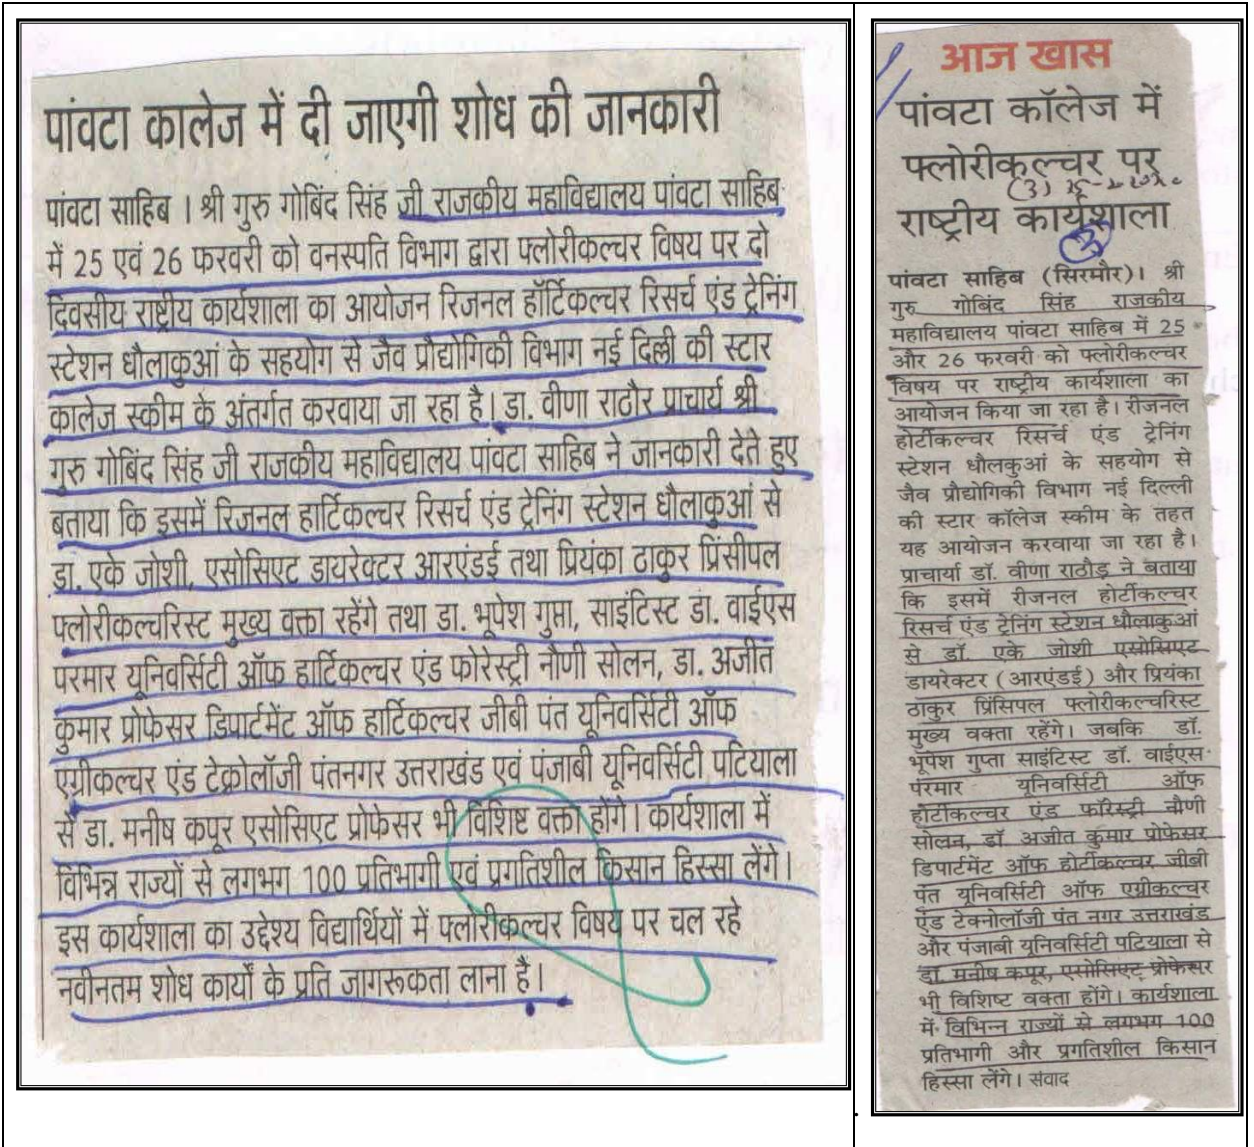 पांवटा कालेज में दी जाएगी शोध की जानकारी
पांवटा साहिब । श्री गुरु गोबिंद सिंह जी राजकीय महाविद्यालय पांवटा साहिब
में 25 एवं 26 फरवरी को वनस्पति विभाग द्वारा फ्लोरीकल्चर विषय पर दो
दिवसीय राष्ट्रीय कार्यशाला का आयोजन रिजनल हॉर्टिकल्चर रिसर्च एंड ट्रेनिंग
स्टेशन धौलाकुआं के सहयोग से जैव प्रौद्योगिकी विभाग नई दिल्ली की स्टार
कालेज स्कीम के अंतर्गत करवाया जा रहा है। डा. वीणा राठौर प्राचार्य श्री
गुरु गोबिंद सिंह जी राजकीय महाविद्यालय पांवटा साहिब ने जानकारी देते हुए
बताया कि इसमें रिजनल हार्टिकल्चर रिसर्च एंड ट्रेनिंग स्टेशन धौलाकुआं से
डा. एके जोशी, एसोसिएट डायरेक्टर आरएंडई तथा प्रियंका ठाकुर प्रिंसीपल
फ्लोरीकल्चरिस्ट मुख्य वक्ता रहेंगे तथा डा. भूपेश गुप्ता, साइंटिस्ट डा. वाईएस
परमार यूनिवर्सिटी ऑफ हार्टिकल्चर एंड फोरेस्ट्री नौणी सोलन, डा. अजीत
कुमार प्रोफेसर डिपार्टमेंट ऑफ हार्टिकल्चर जीबी पंत यूनिवर्सिटी ऑफ
एग्रीकल्चर एंड टेक्नोलॉजी पंतनगर उत्तराखंड एवं पंजाबी यूनिवर्सिटी पटियाला
से डा. मनीष कपूर एसोसिएट प्रोफेसर भी विशिष्ट वक्ता होंगे। कार्यशाला में
विभिन्न राज्यों से लगभग 100 प्रतिभागी एवं प्रगतिशील किसान हिस्सा लेंगे।
इस कार्यशाला का उद्देश्य विद्यार्थियों में फ्लोरीकल्चर विषय पर चल रहे
नवीनतम शोध कार्यों के प्रति जागरूकता लाना है।
आज खास
पांवटा कॉलेज में
फ्लोरीकल्चर पर
(3)
राष्ट्रीय कार्यशाला
3
पांवटा साहिब (सिरमौर)। श्री
गुरु गोबिंद सिंह राजकीय
महाविद्यालय पांवटा साहिब में 25
और 26 फरवरी को फ्लोरीकल्चर
विषय पर राष्ट्रीय कार्यशाला का
आयोजन किया जा रहा है। रीजनल
होर्टीकल्चर रिसर्च एंड ट्रेनिंग
स्टेशन धौलकुआं के सहयोग से
जैव प्रौद्योगिकी विभाग नई दिल्ली
की स्टार कॉलेज स्कीम के तहत
यह आयोजन करवाया जा रहा है।
प्राचार्या डॉ. वीणा राठौड़ ने बताया
कि इसमें रीजनल होर्टीकल्चर
रिसर्च एंड ट्रेनिंग स्टेशन धौलाकुआं
से डॉ. एके जोशी एसोसिएट
डायरेक्टर (आरएंडई) और प्रियंका
ठाकुर प्रिंसिपल फ्लोरीकल्चरिस्ट
मुख्य वक्ता रहेंगे। जबकि डॉ.
भूपेश गुप्ता साइंटिस्ट डॉ. वाईएस
परमार यूनिवर्सिटी ऑफ
होर्टीकल्चर एंड फॉरेस्ट्री नौणी
सोलन, डॉ अजीत कुमार प्रोफेसर
डिपार्टमेंट ऑफ होर्टीकल्चर जीबी
पंत यूनिवर्सिटी ऑफ एग्रीकल्चर
एंड टेक्नोलॉजी पंत नगर उत्तराखंड
और पंजाबी यूनिवर्सिटी पटियाला से
डा मनीष कपूर, एसोसिएट प्रोफेसर
भी विशिष्ट वक्ता होंगे। कार्यशाला
में विभिन्न राज्यों से लगभग 100
प्रतिभागी और प्रगतिशील किसान
हिस्सा लेंगे। संवाद